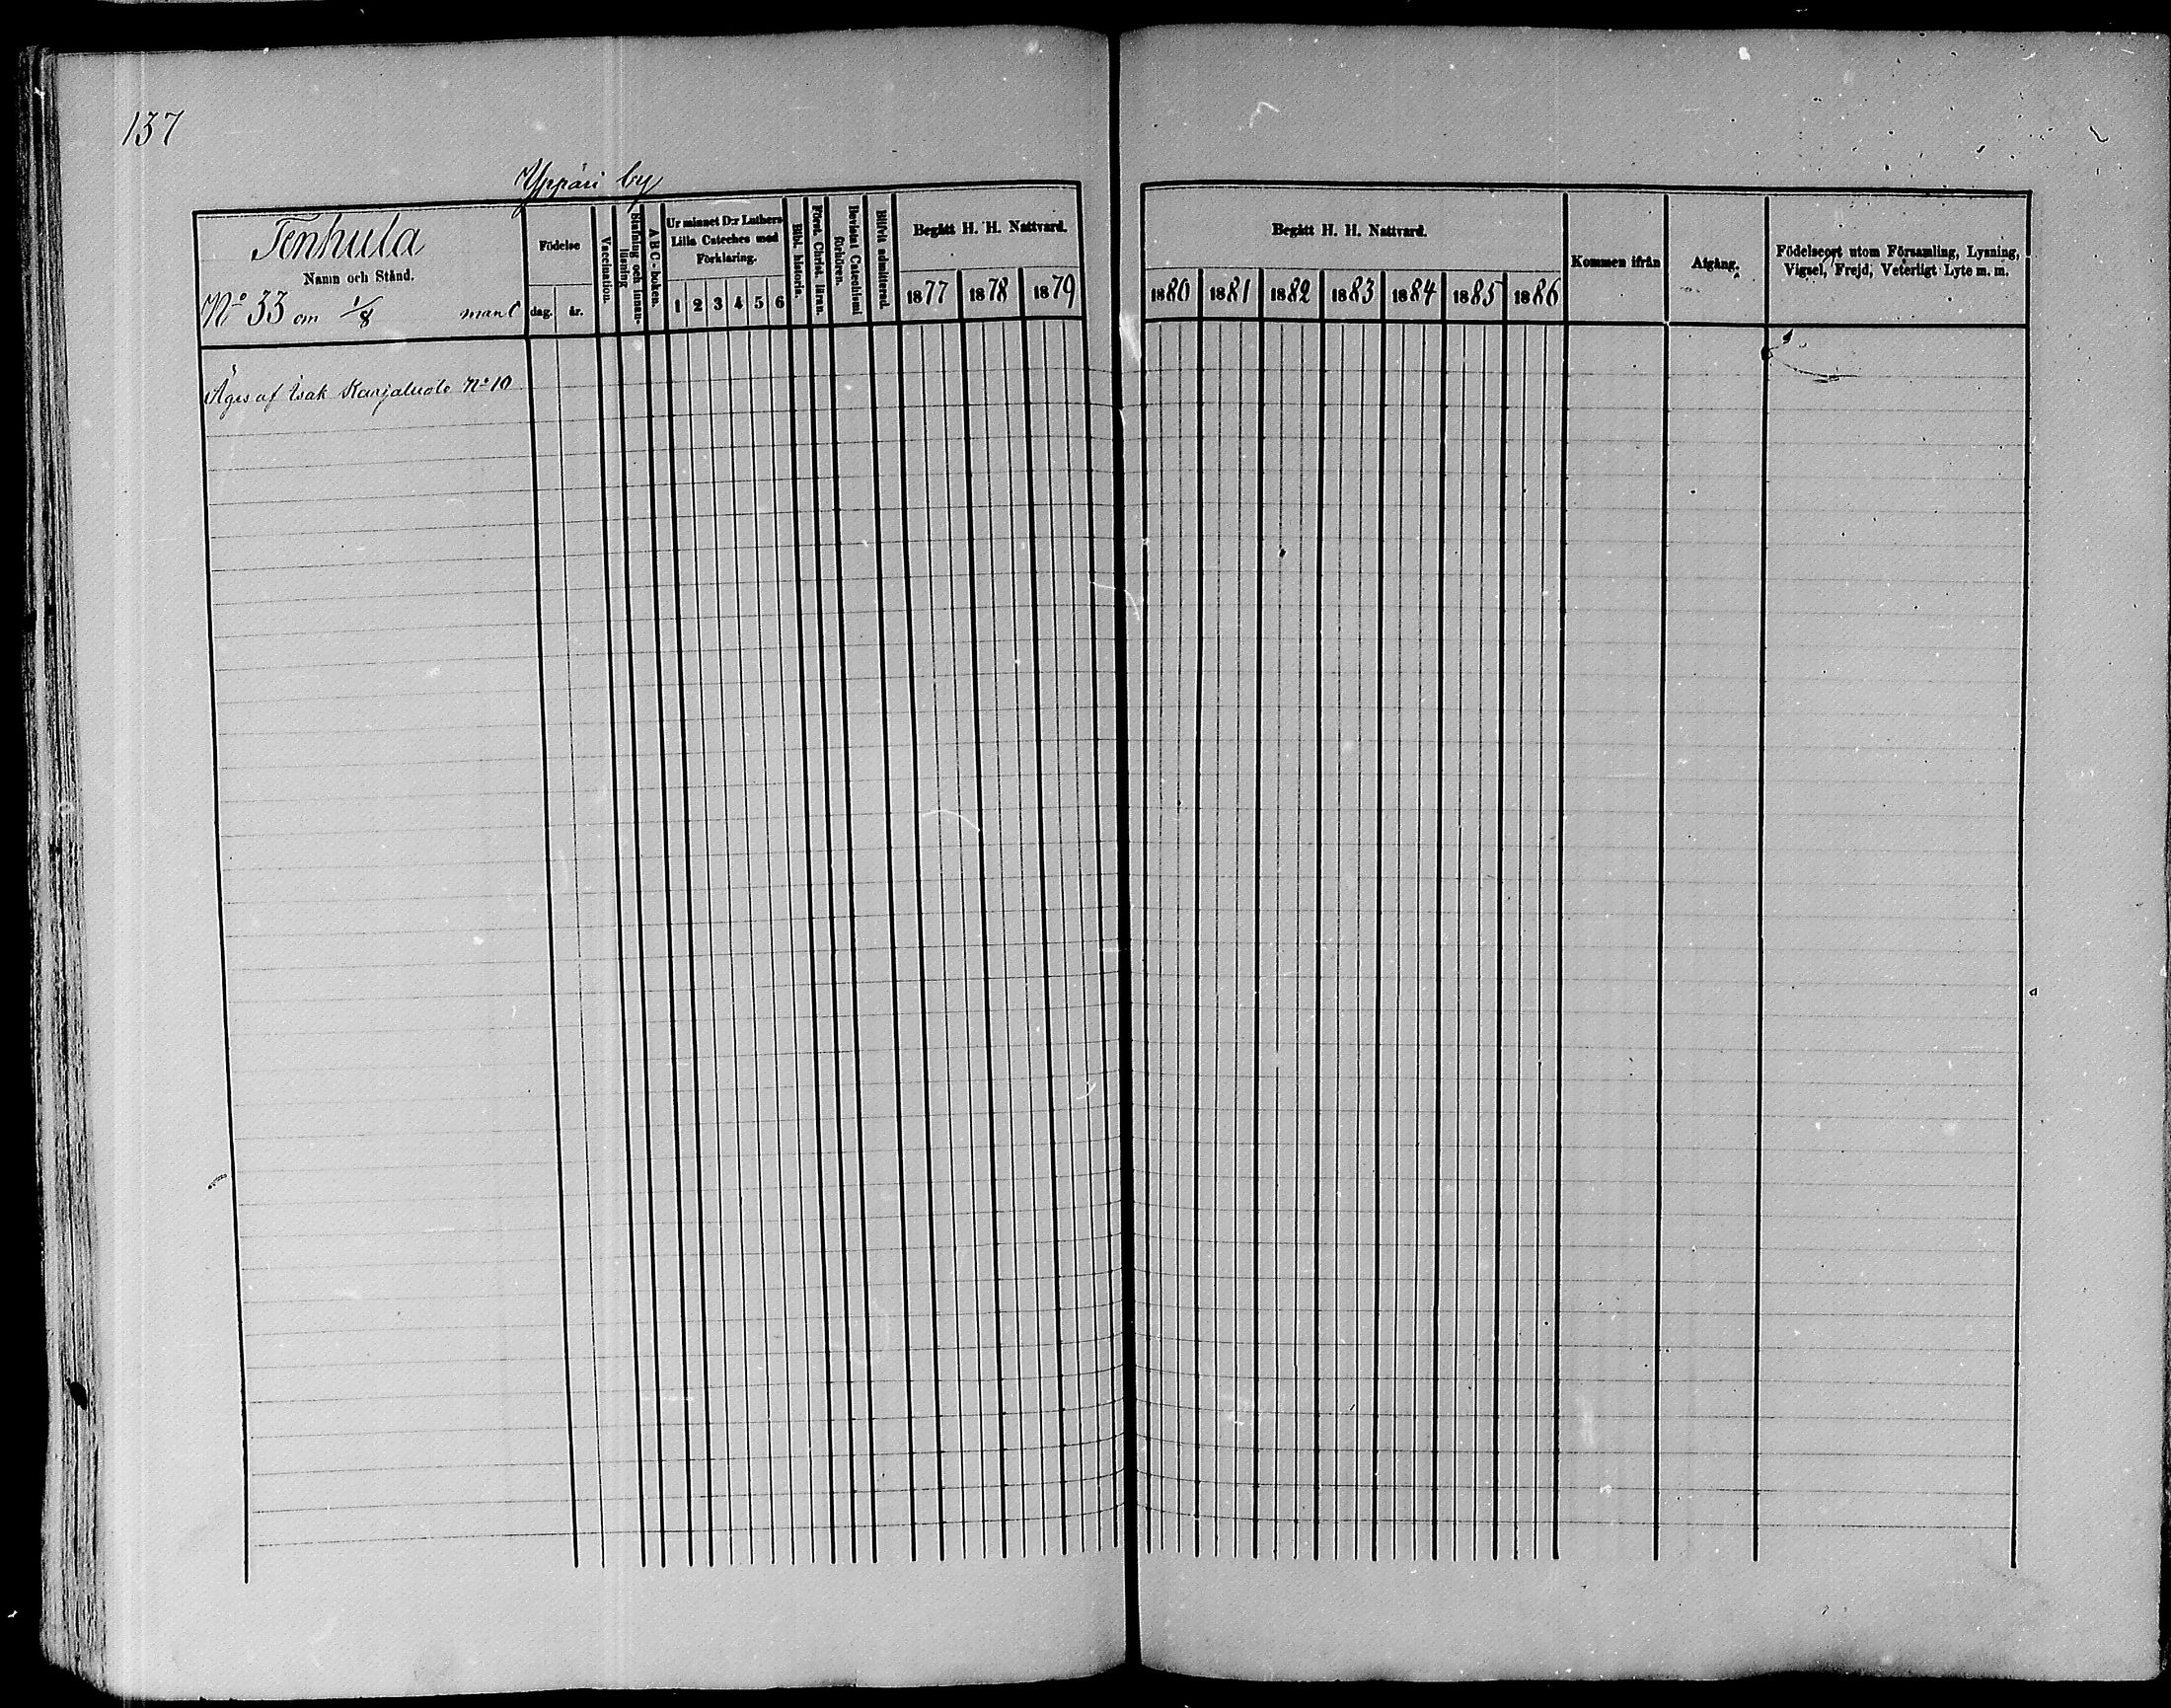 137
Yppäri by
Tenhula
Namn och Stånd.
No 33 om 1/8 mantl
Födelse
dag. år.
Vaccination.
Stafning och innan-
läsning
ABC-boken.
Ur minnet D:r Luthers
Lilla Cateches med
Förklaring.
1 2 3 4 5 6
Bibl. historia.
Först. Christ. läran.
Bevistat Catechismi
förhören.
Blifvit admitterad.
Begått H. H. Nattvard.
1877 1878 1879
Begått H. H. Nattvard.
1880 1881 1882 1883 1884 1885 1886
Kommen ifrån
Afgång.
Födelseort utom Församling, Lysning,
Vigsel, Frejd, Veterligt Lyte m. m.
Äges af Isak Karjaluoto No 10